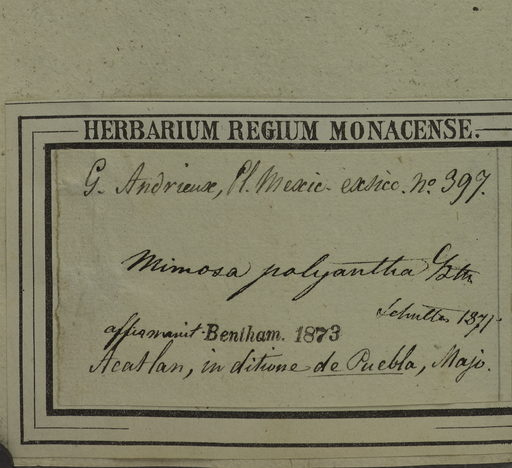 HERBARIUM REGIUM MONACENSE.
G. Andrieux, Pl. Mexic. exsicc. no. 397.
Mimosa polyantha Bth
1871.
affirmavit Bentham. 1873
Acatlan, in ditione de Puebla, Majo.